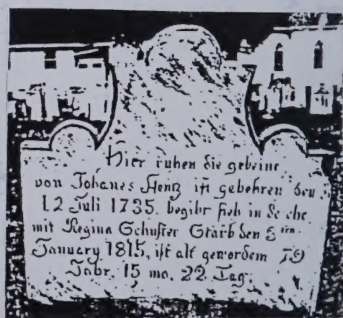 Hier ruhen die gebeine
von Johanes Hentz ist gebohren den
12 Juli 1735. begibt sich in de ehe
mit Regina Schuster Starb den
January 1815, ist alt gewordem 79
Jahr. 15 mo. 22 Tag.